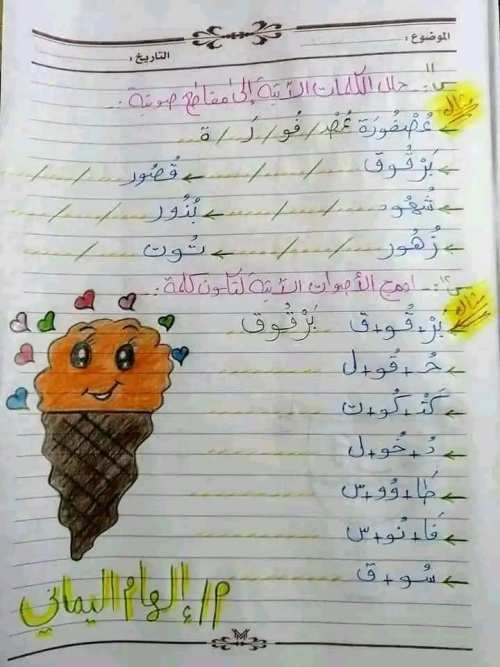 الموضوع :
التاريخ :
س١١ :- حلل الكلمات الآتية إلى مقاطع صوتية :-
مثال
عُصْفُورَة عُصْ / فُو / رَ / ة
بَرْقُوق ...... / ...... / ...... قُصُور ...... / ...... / ......
شُهُود ...... / ...... / ...... بُذُور ...... / ...... / ......
زُهُور ...... / ...... / ...... تُوت ...... / ......
س١٢ :- ادمج الأصوات الآتية لتكون كلمة :-
مثال
بَرْ + قُو + ق بَرْقُوق
حُ + قُو + ل
كَتْ + كُو + ت
دُ + خُو + ل
طَا + وُو + س
فَا + نُو + س
سُو + ق
م/ إلهام اليماني